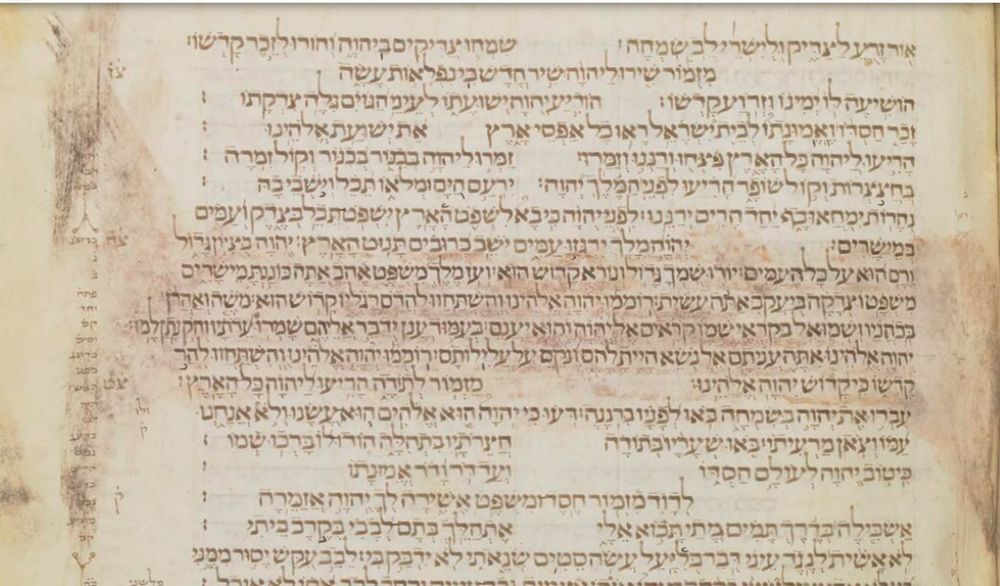 אור זרע לצדיק ולישרי לב שמחה׃ שמחו צדיקים ביהוה והודו לזכר קדשו׃
צז
מזמור שירו ליהוה שיר חדש כי נפלאות עשה
הושיעה לו ימינו וזרוע קדשו׃ הודיע יהוה ישועתו לעיני הגוים גלה צדקתו ׃
זכר חסדו ואמונתו לבית ישראל ראו כל אפסי ארץ את ישועת אלהינו ׃
הריעו ליהוה כל הארץ פצחו ורננו וזמרו׃ זמרו ליהוה בכנור בכנור וקול זמרה ׃
בחצצרות וקול שופר הריעו לפני המלך יהוה׃ ירעם הים ומלאו תבל וישבי בה ׃
נהרות ימחאו כף יחד הרים ירננו׃ לפני יהוה כי בא לשפט הארץ ישפט תבל בצדק ועמים
צח
במישרים׃ יהוה מלך ירגזו עמים ישב כרובים תנוט הארץ׃ יהוה בציון גדול
ורם הוא על כל העמים׃ יודו שמך גדול ונורא קדוש הוא׃ ועז מלך משפט אהב אתה כוננת מישרים
משפט וצדקה ביעקב אתה עשית׃ רוממו יהוה אלהינו והשתחוו להדם רגליו קדוש הוא׃ משה ואהרן
בכהניו ושמואל בקראי שמו קראים אל יהוה והוא יענם׃ בעמוד ענן ידבר אליהם שמרו עדתיו וחק נתן למו׃
יהוה אלהינו אתה עניתם אל נשא היית להם ונקם על עלילותם׃ רוממו יהוה אלהינו והשתחוו להר
צט
קדשו כי קדוש יהוה אלהינו׃ מזמור לתודה הריעו ליהוה כל הארץ׃
עבדו את יהוה בשמחה באו לפניו ברננה׃ דעו כי יהוה הוא אלהים הוא עשנו ולא אנחנו
עמו וצאן מרעיתו׃ באו שעריו בתודה חצרתיו בתהלה הודו לו ברכו שמו ׃
כי טוב יהוה לעולם חסדו ועד דר ודר אמונתו ׃
ק
לדוד מזמור חסד ומשפט אשירה לך יהוה אזמרה ׃
אשכילה בדרך תמים מתי תבוא אלי אתהלך בתם לבבי בקרב ביתי ׃
לא אשית לנגד עיני דבר בליעל עשה סטים שנאתי לא ידבק בי׃ לבב עקש יסור ממני